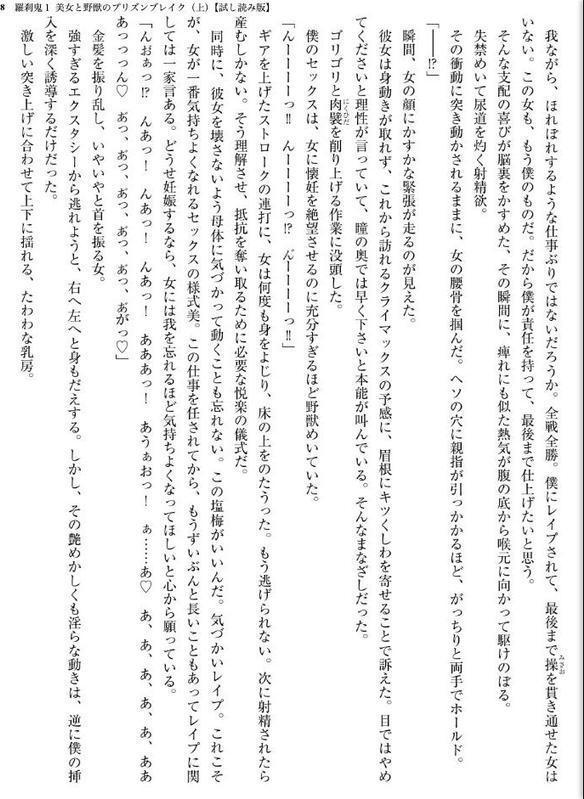 8　羅刹鬼１ 美女と野獣のプリズンブレイク（上）【試し読み版】
我ながら、ほれぼれするような仕事ぶりではないだろうか。全戦全勝。僕にレイプされて、最後まで操を貫き通せた女は
いない。この女も、もう僕のものだ。だから僕が責任を持って、最後まで仕上げたいと思う。
そんな支配の喜びが脳裏をかすめた、その瞬間に、痺れにも似た熱気が腹の底から喉元に向かって駆けのぼる。
失禁めいて尿道を灼く射精欲。
その衝動に突き動かされるままに、女の腰骨を掴んだ。ヘソの穴に親指が引っかかるほど、がっちりと両手でホールド。
「――⁉」
瞬間、女の顔にかすかな緊張が走るのが見えた。
彼女は身動きが取れず、これから訪れるクライマックスの予感に、眉根にキツくしわを寄せることで訴えた。目ではやめ
てくださいと理性が言っていて、瞳の奥では早く下さいと本能が叫んでいる。そんなまなざしだった。
ゴリゴリと肉襞を削り上げる作業に没頭した。
僕のセックスは、女に懐妊を絶望させるのに充分すぎるほど野獣めいていた。
「んーーーーっ‼　んーーーーっ⁉　んーーーーっ‼」
ギアを上げたストロークの連打に、女は何度も身をよじり、床の上をのたうった。もう逃げられない。次に射精されたら
産むしかない。そう理解させ、抵抗を奪い取るために必要な悦楽の儀式だ。
同時に、彼女を壊さないよう母体に気づかって動くことも忘れない。この塩梅がいいんだ。気づかいレイプ。これこそ
が、女が一番気持ちよくなれるセックスの様式美。この仕事を任されてから、もうずいぶんと長いこともあってレイプに関
しては一家言ある。どうせ妊娠するなら、女には我を忘れるほど気持ちよくなってほしいと心から願っている。
「んぉぁっ⁉　んあっ！　んあっ！　んあっ！　あああっ！　あうぁおっ！　ぁ……あ♡　あ、あ、あ、あ、あ、ああ
あっっっん♡　あっ、あっ、あっ、あっ、あっ、あがっ♡」
金髪を振り乱し、いやいやと首を振る女。
強すぎるエクスタシーから逃れようと、右へ左へと身もだえする。しかし、その艶めかしくも淫らな動きは、逆に僕の挿
入を深く誘導するだけだった。
激しい突き上げに合わせて上下に揺れる、たわわな乳房。